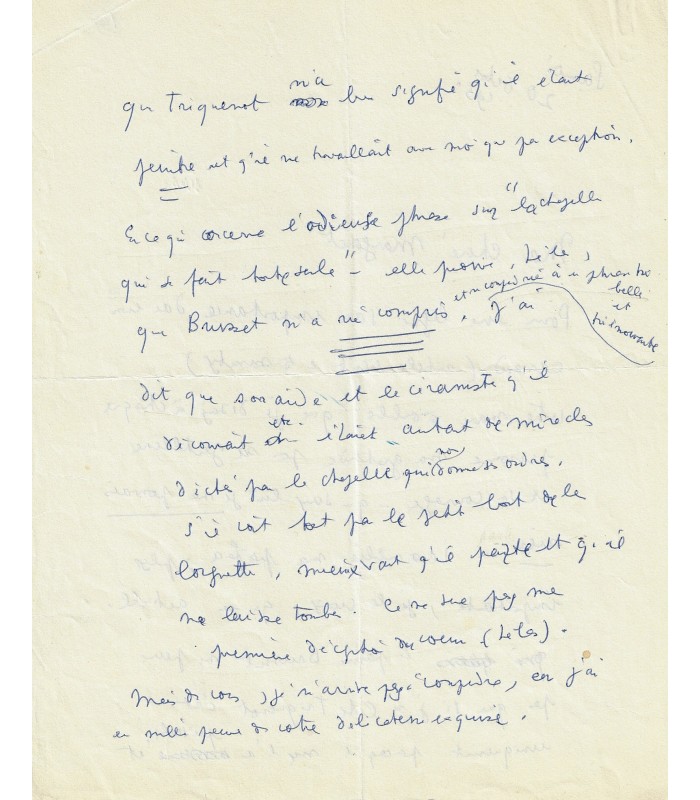 que Triquenot n'a bien signifié qu'il était
peintre et qu'il ne travaillait avec moi que par exception.
En ce qui concerne l'odieuse phrase sur "la chapelle
qui se fait toute seule" – elle prouve, hélas,
que Brusset n'a rien compris, et n
belle
et
très émouvante
j'ai
dit que son aide et le céramiste qu'il
découvrait etc. étaient autant de miracles
dictés par la chapelle qui nous donne des ordres.
S'il voit tout par le petit bout de la
lorgnette, mieux vaut qu'il parte et qu'il
me laisse tomber. Ce ne sera pas ma
première déception du coeur (hélas).
Mais de vous, je n'arrive pas à comprendre, car j'ai
en mille preuves de votre délicatesse exquise.